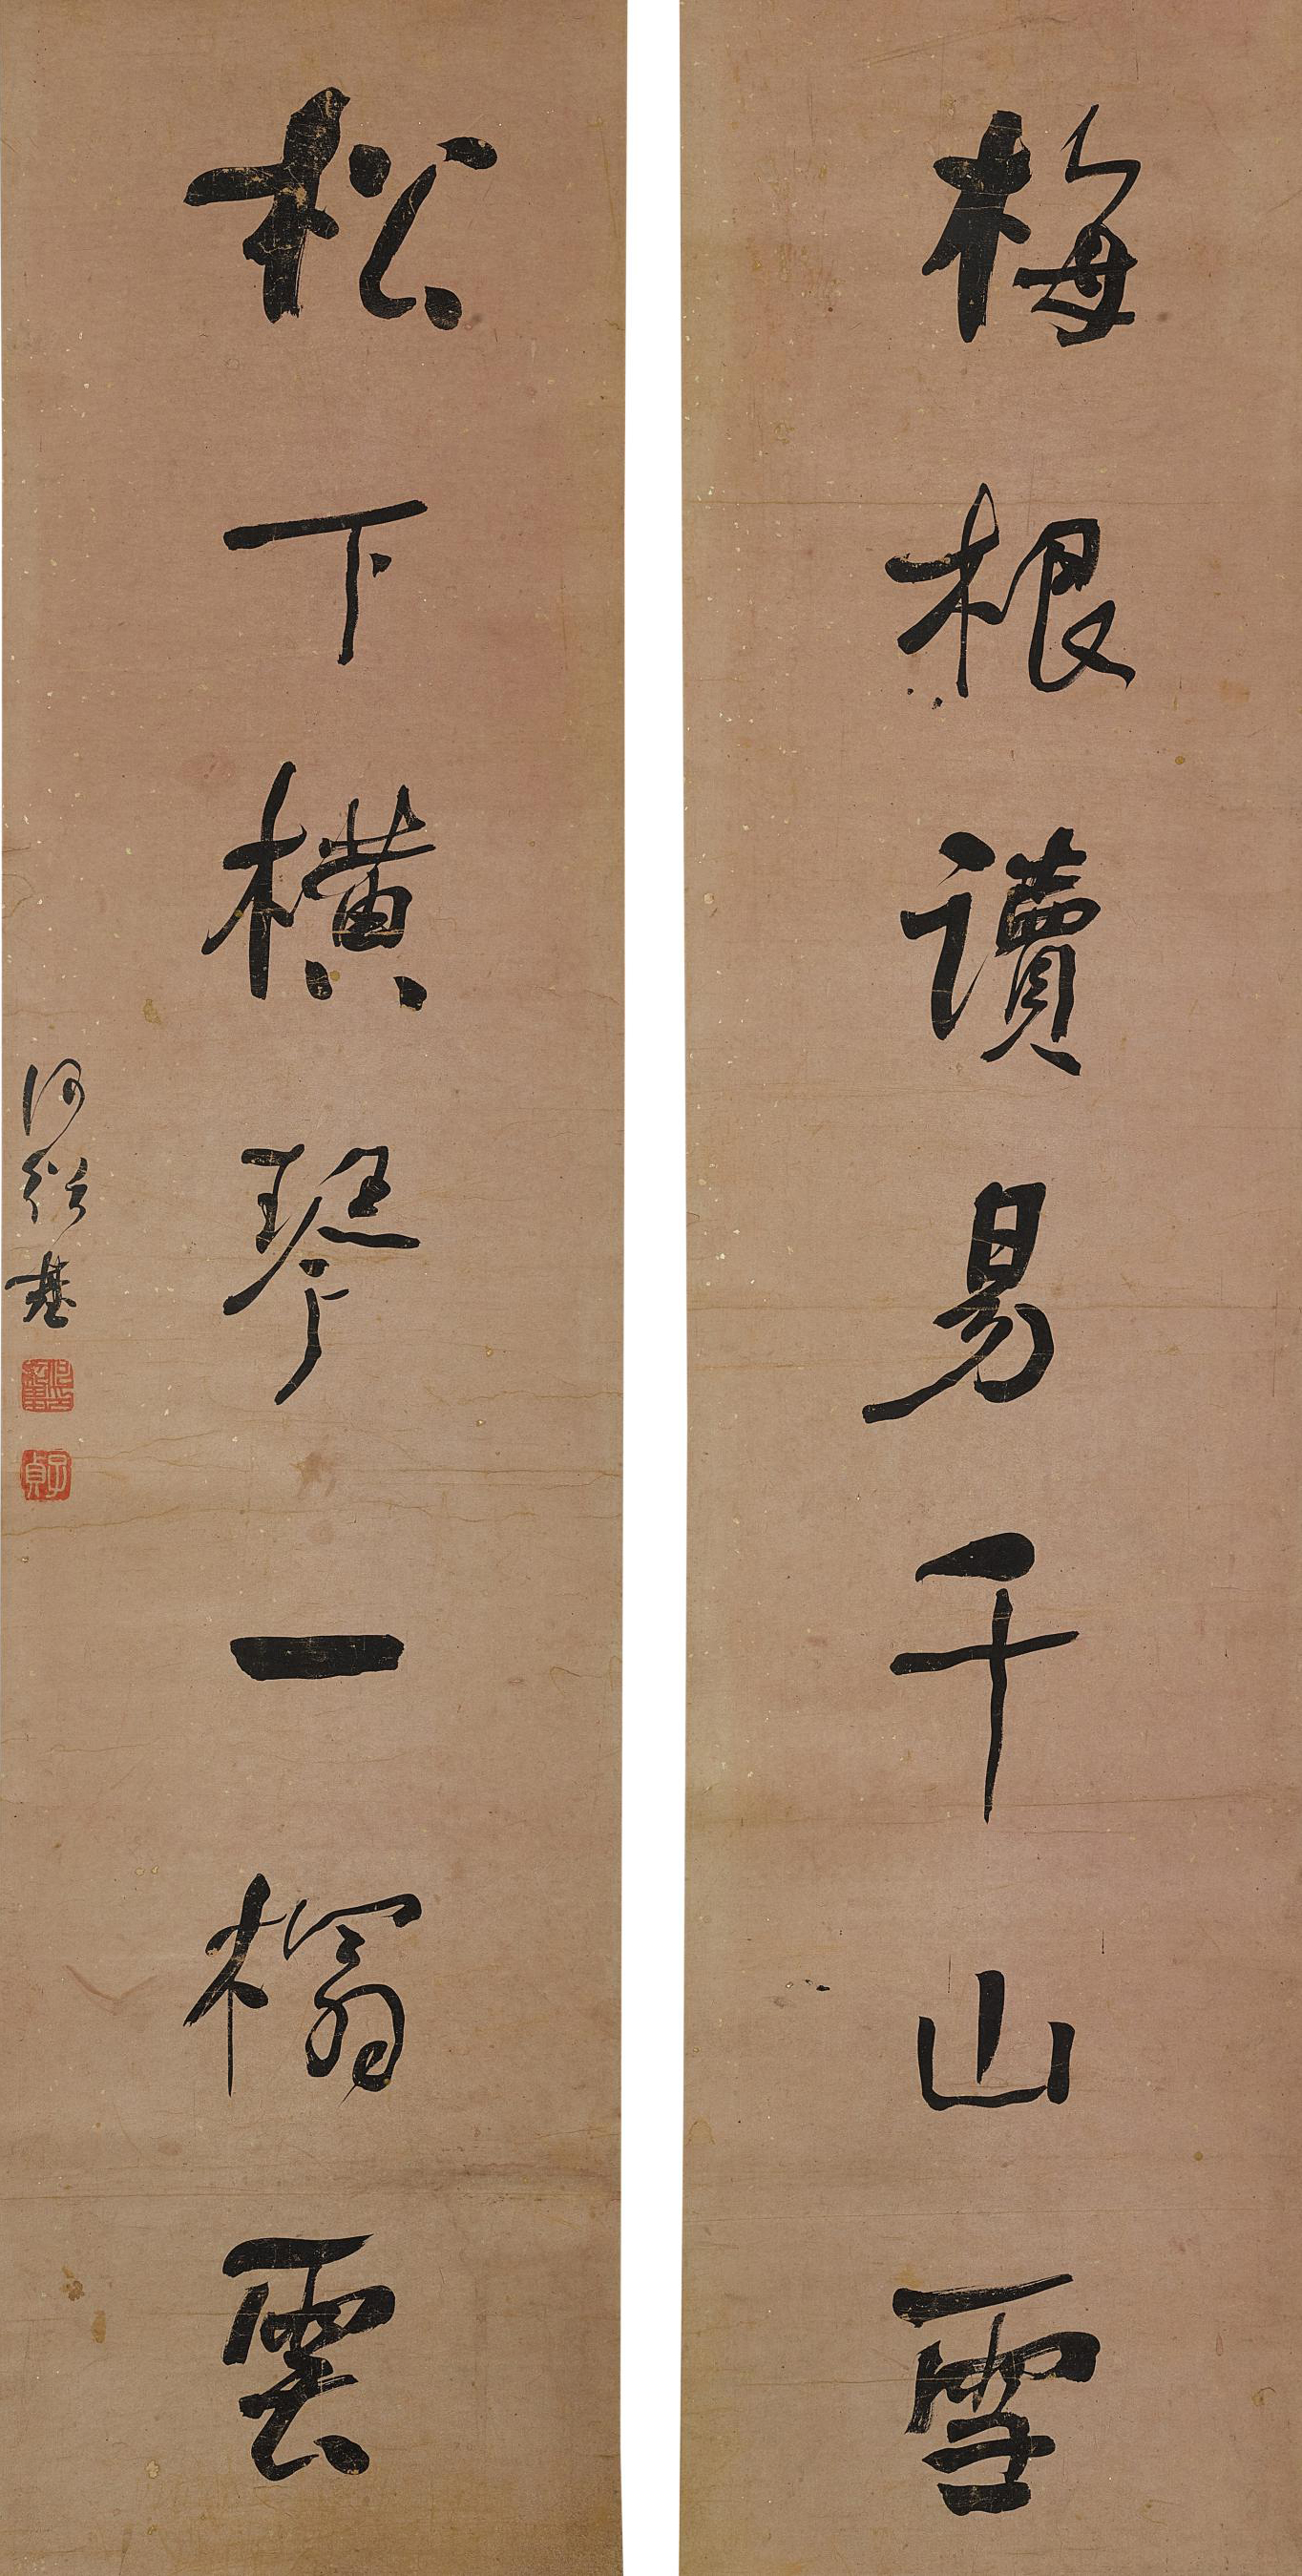 梅根讀易千山雪
松下橫琴一榻雲
何紹基
子貞